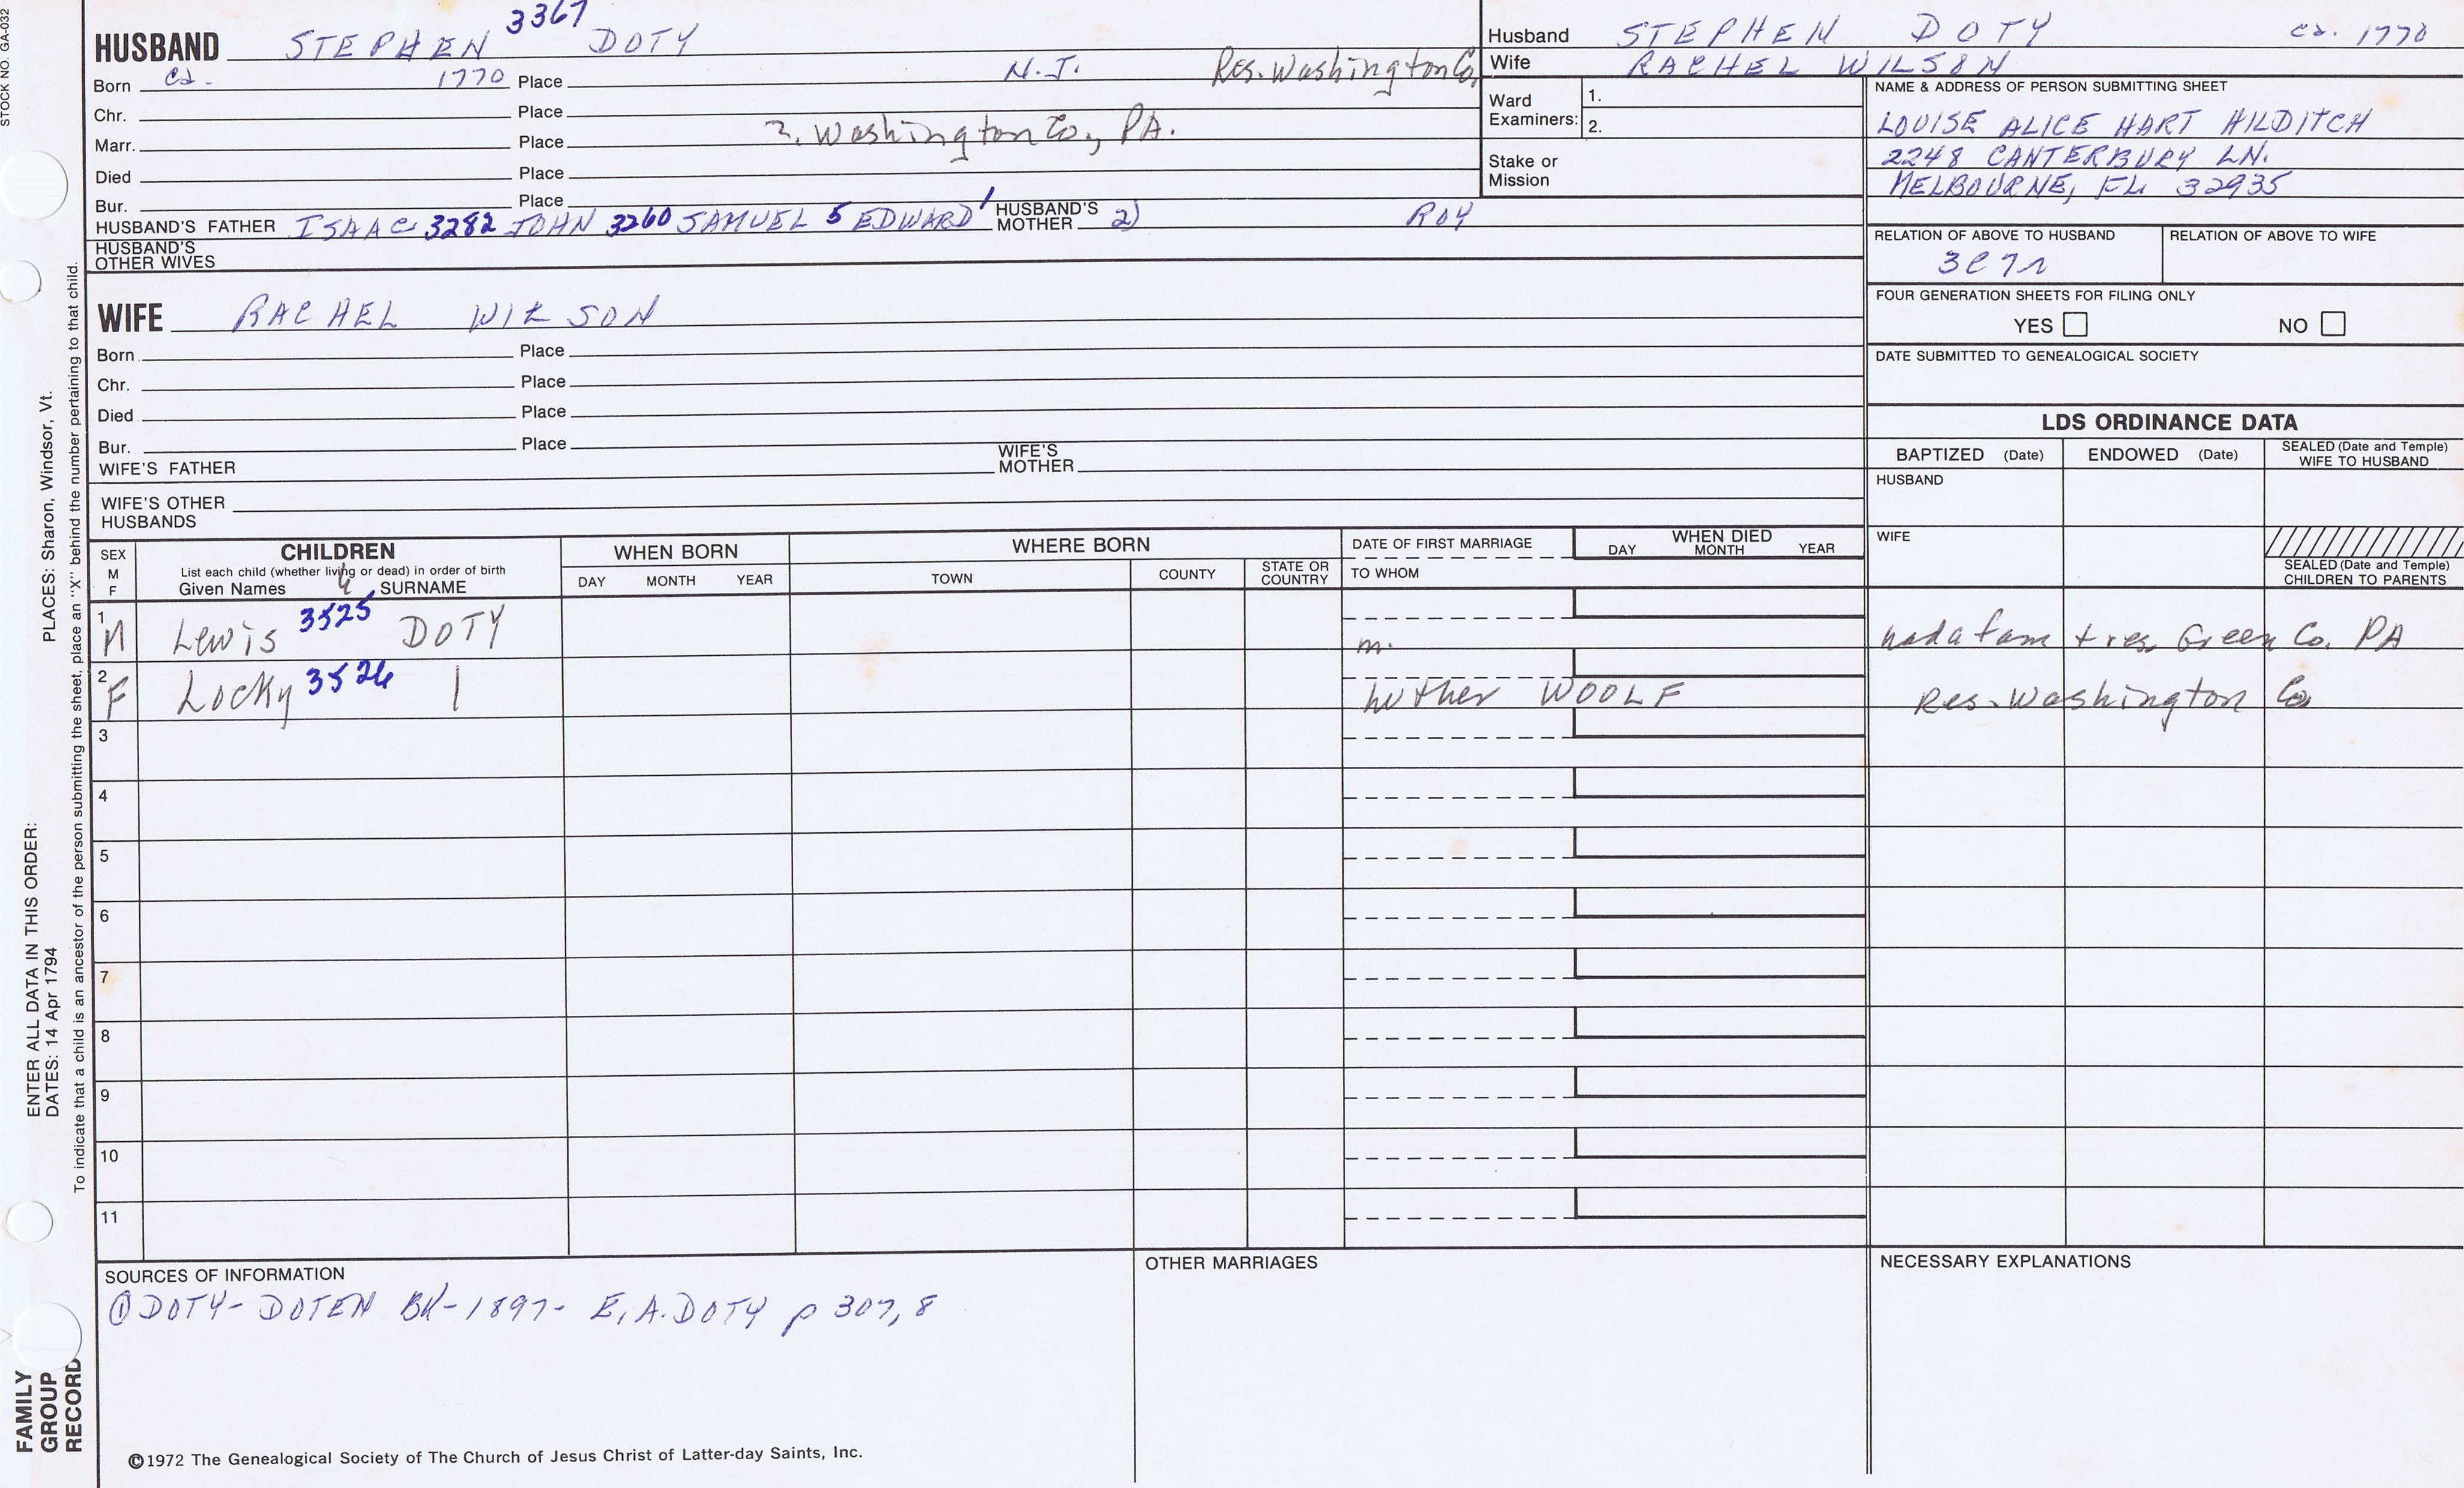 STOCK NO. GA-032
PLACES: Sharon, Windsor, Vt.
ENTER ALL DATA IN THIS ORDER:
DATES: 14 Apr 1794
To indicate that a child is an ancestor of the person submitting the sheet, place an "X" behind the number pertaining to that child.
FAMILY
GROUP
RECORD
HUSBAND STEPHEN 3367 DOTY
Born ca. 1770 Place N.J. Res. Washington Co,
Chr. Place
Marr. Place ?. Washington Co, PA.
Died Place
Bur. Place
HUSBAND'S FATHER ISAAC 3282 JOHN 3260 SAMUEL 5 EDWARD 1 HUSBAND'S MOTHER 2) ROY
HUSBAND'S
OTHER WIVES
Husband STEPHEN DOTY ca. 1770
Wife RACHEL WILSON
Ward
Examiners: 1.
2.
Stake or
Mission
NAME & ADDRESS OF PERSON SUBMITTING SHEET
LOUISE ALICE HART HILDITCH
2248 CANTERBURY LN.
MELBOURNE, FL 32935
RELATION OF ABOVE TO HUSBAND RELATION OF ABOVE TO WIFE
3C7r
FOUR GENERATION SHEETS FOR FILING ONLY
YES NO
DATE SUBMITTED TO GENEALOGICAL SOCIETY
WIFE RACHEL WILSON
Born Place
Chr. Place
Died Place
Bur. Place
WIFE'S FATHER WIFE'S MOTHER
WIFE'S OTHER
HUSBANDS
LDS ORDINANCE DATA
BAPTIZED (Date) ENDOWED (Date) SEALED (Date and Temple) WIFE TO HUSBAND
HUSBAND
WIFE
SEALED (Date and Temple)
CHILDREN TO PARENTS
SEX
M
F
CHILDREN
List each child (whether living or dead) in order of birth
Given Names SURNAME
WHEN BORN
DAY MONTH YEAR
WHERE BORN
TOWN COUNTY STATE OR COUNTRY
DATE OF FIRST MARRIAGE
TO WHOM
WHEN DIED
DAY MONTH YEAR
1 M Lewis 3525 DOTY m. had a fam + res. Green Co. PA
2 F Locky 3526 | Luther WOOLF Res. Washington Co
3
4
5
6
7
8
9
10
11
SOURCES OF INFORMATION
① DOTY-DOTEN BK-1897- E.A.DOTY p 307,8
OTHER MARRIAGES
NECESSARY EXPLANATIONS
©1972 The Genealogical Society of The Church of Jesus Christ of Latter-day Saints, Inc.